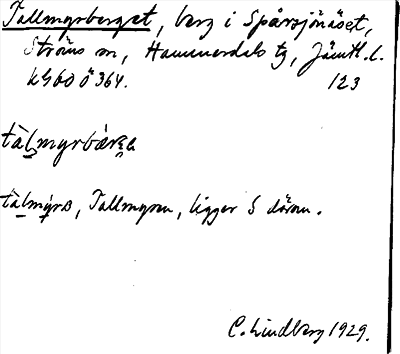 Tallmyrberget, berg i Spårsjönäset,
Ströms sn, Hammerdals tg, Jämtl. l.
k460 Ö364. 123
tàlmyrbærʒa
tàlmýra, Tallmyren, ligger S därom.
C. Lindberg 1929.